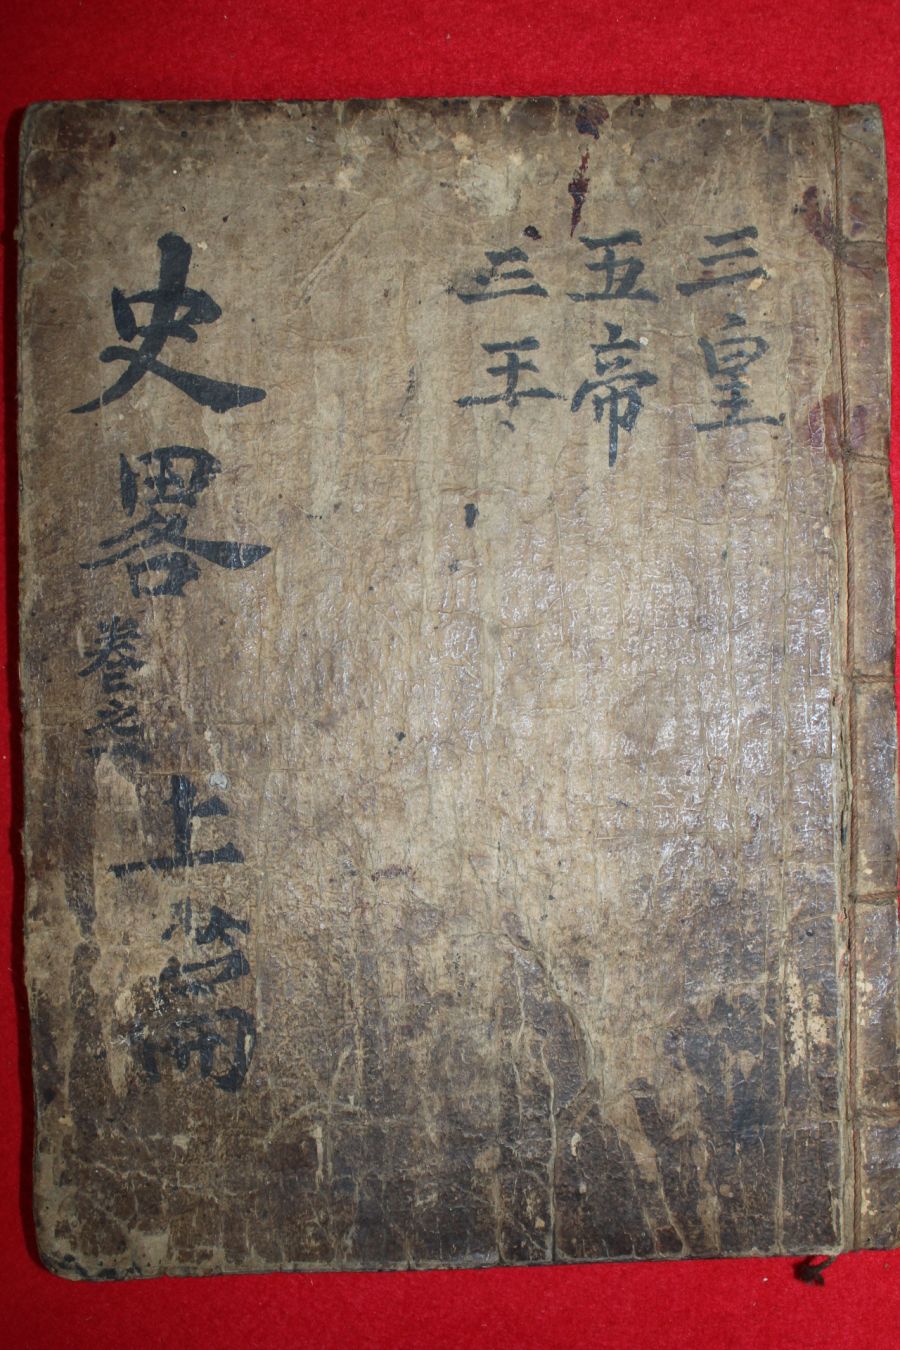 三皇
五帝
三王
史畧卷之上篇